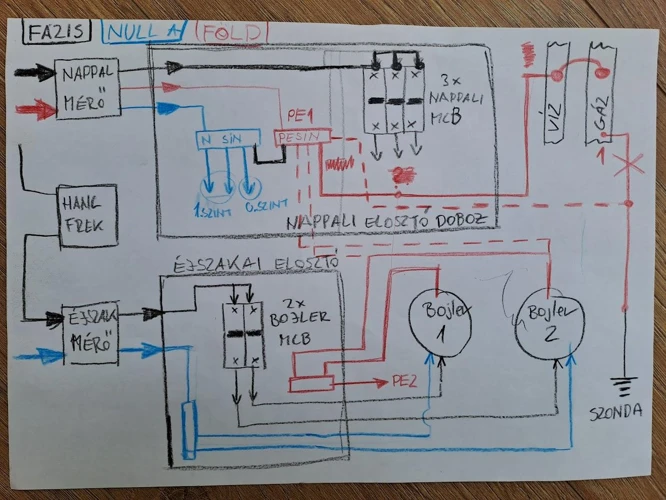 FÁZIS NULLA FÖLD
NAPPAL
MÉRŐ
3x
NAPPALI
MCB
VÍZ
GÁZ
PE1
N SÍN
PESÍN
1
1.SZINT
0.SZINT
NAPPALI ELOSZTÓ DOBOZ
HANG
FREK
ÉJSZAKAI ELOSZTÓ
2x
BOJLER
MCB
ÉJSZAK
MÉRŐ
Bojler
1
Bojler
2
PE2
SZONDA